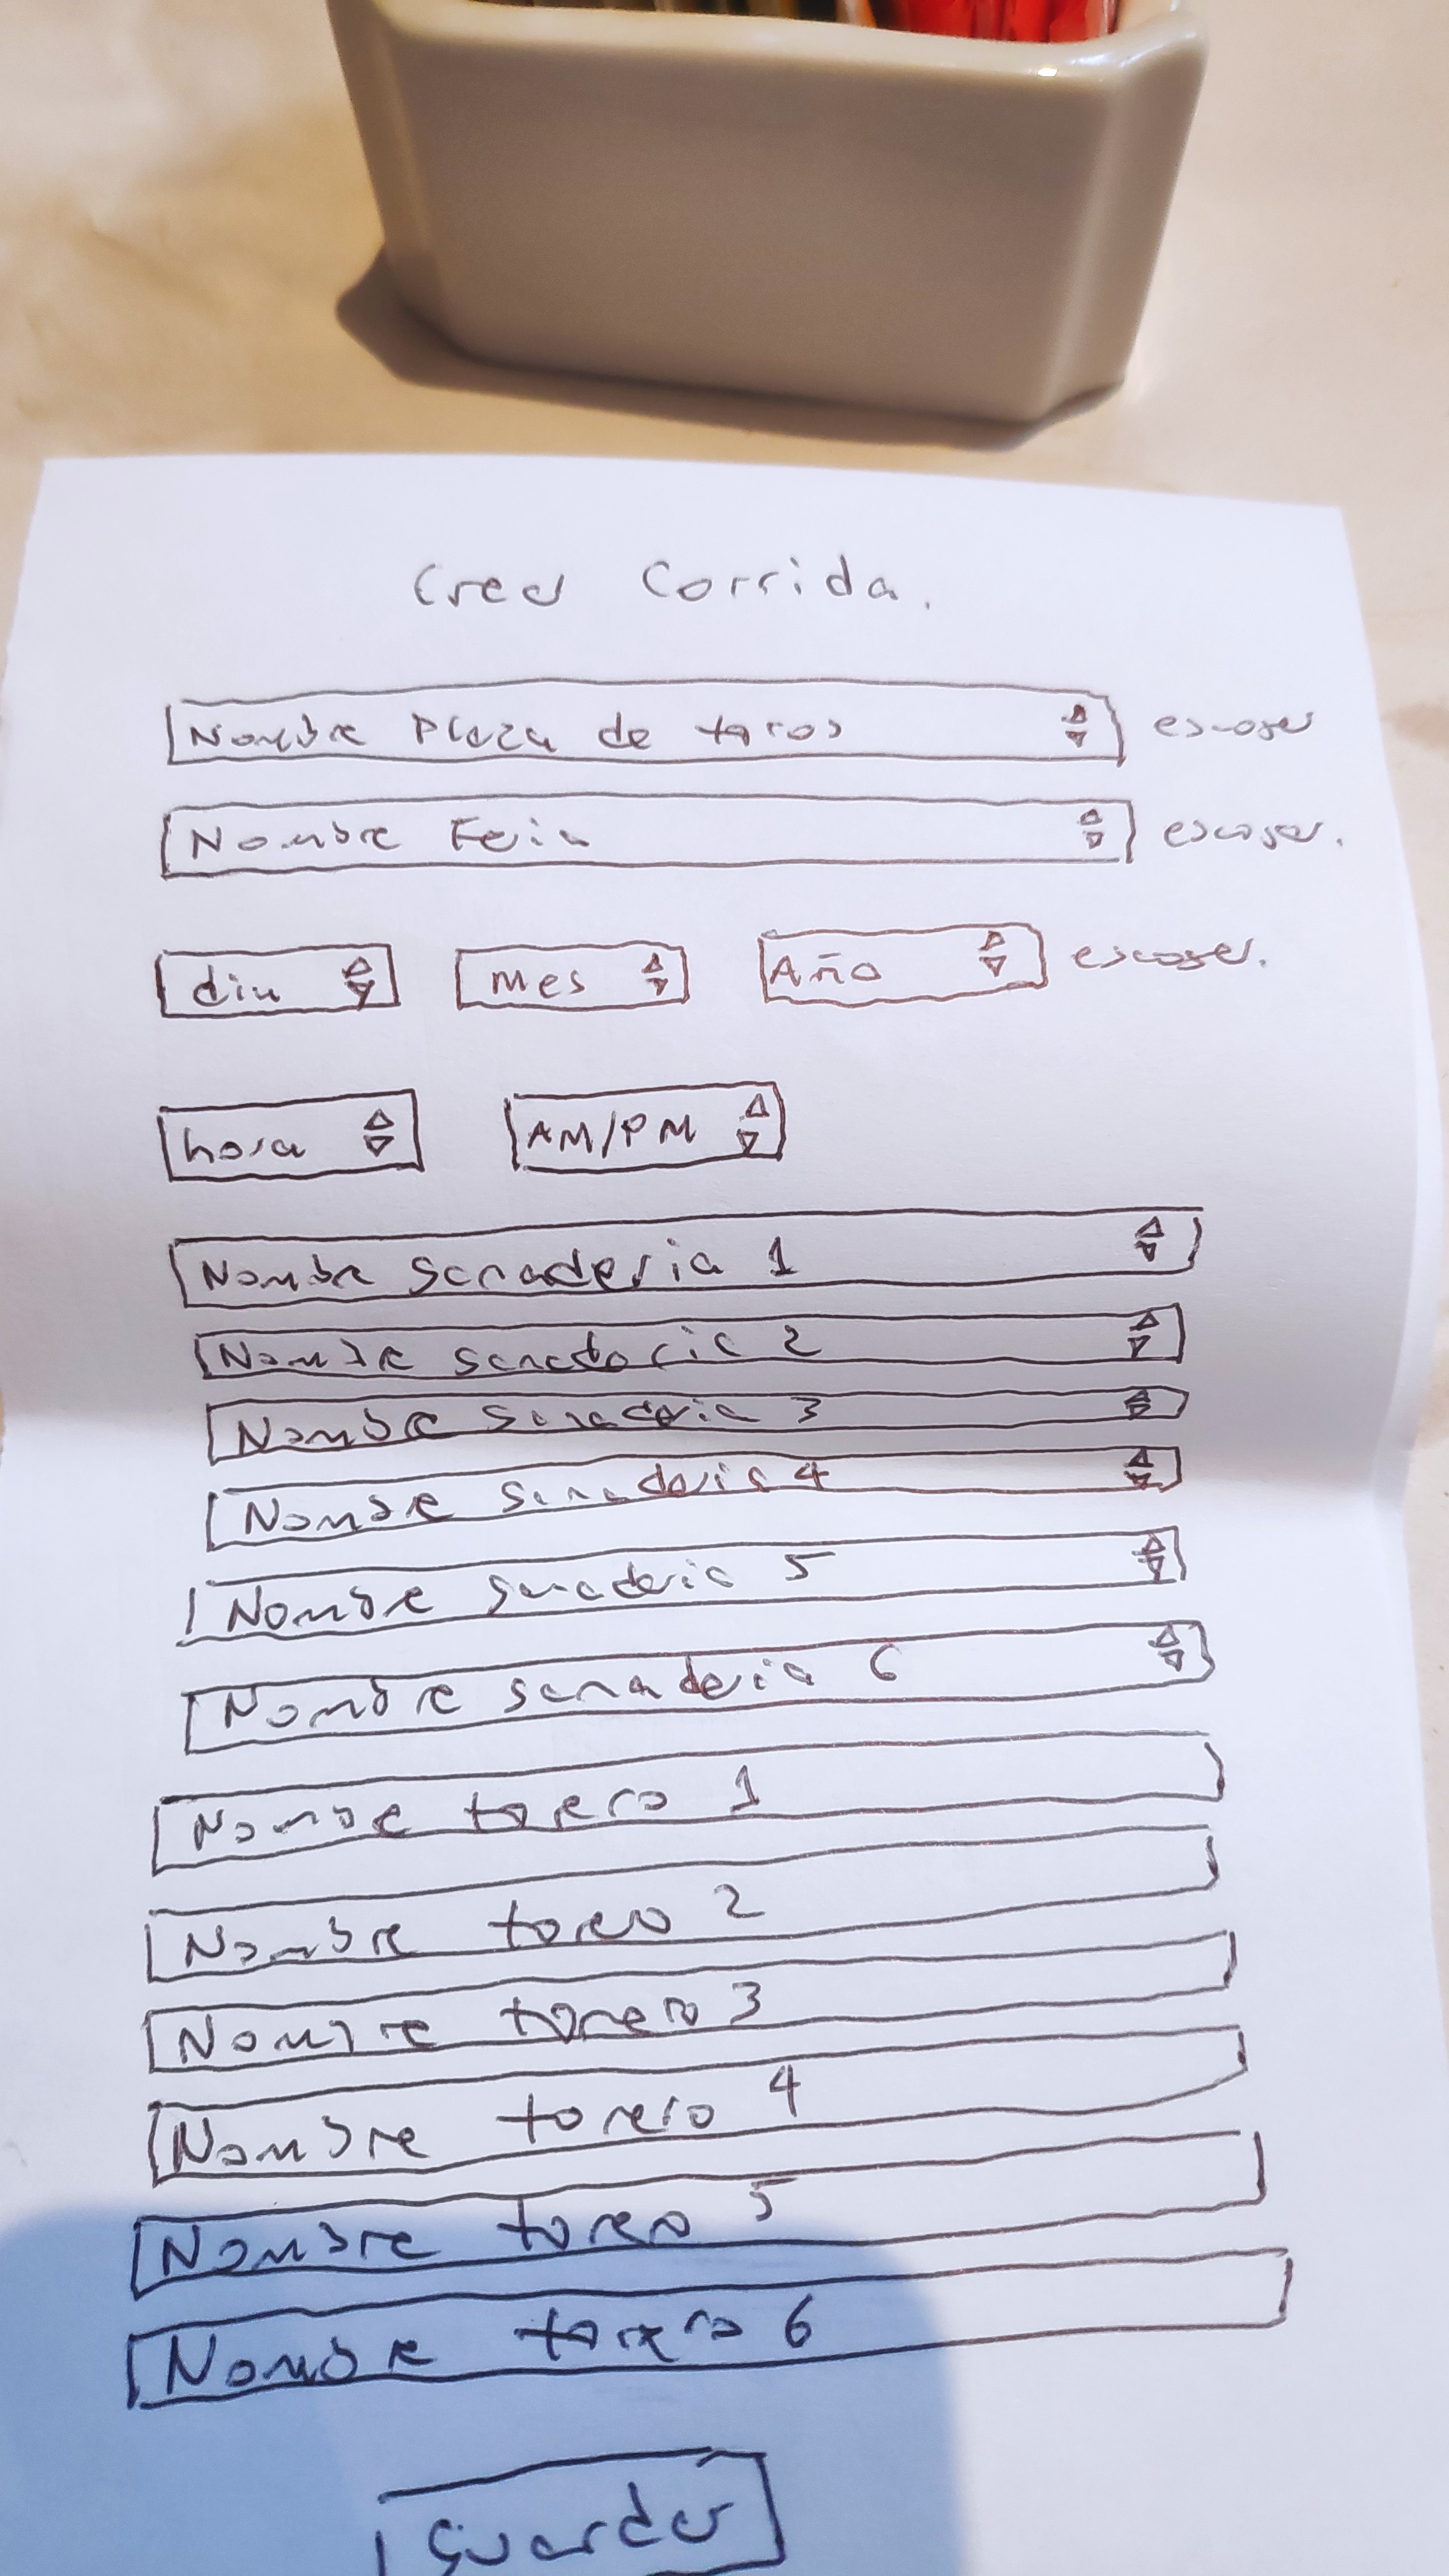 Crear Corrida.
Nombre Plaza de toros escoger
Nombre Feria escoger.
dia Mes Año escoger.
hora AM/PM
Nombre ganaderia 1
Nombre ganaderia 2
Nombre ganaderia 3
Nombre ganaderia 4
Nombre ganaderia 5
Nombre ganaderia 6
Nombre torero 1
Nombre torero 2
Nombre torero 3
Nombre torero 4
Nombre torero 5
Nombre torero 6
Guardar